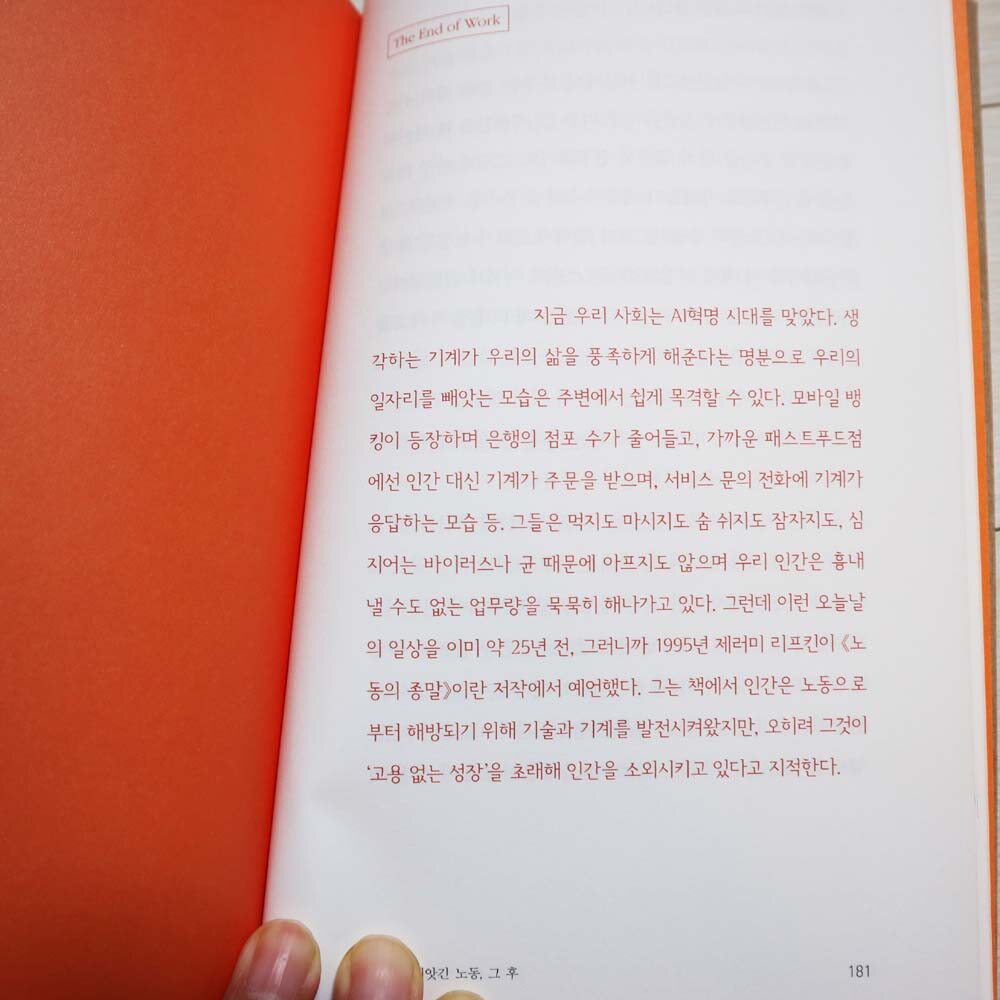 The End of Work
지금 우리 사회는 AI혁명 시대를 맞았다. 생
각하는 기계가 우리의 삶을 풍족하게 해준다는 명분으로 우리의
일자리를 빼앗는 모습은 주변에서 쉽게 목격할 수 있다. 모바일 뱅
킹이 등장하며 은행의 점포 수가 줄어들고, 가까운 패스트푸드점
에선 인간 대신 기계가 주문을 받으며, 서비스 문의 전화에 기계가
응답하는 모습 등. 그들은 먹지도 마시지도 숨 쉬지도 잠자지도, 심
지어는 바이러스나 균 때문에 아프지도 않으며 우리 인간은 흉내
낼 수도 없는 업무량을 묵묵히 해나가고 있다. 그런데 이런 오늘날
의 일상을 이미 약 25년 전, 그러니까 1995년 제러미 리프킨이 《노
동의 종말》이란 저작에서 예언했다. 그는 책에서 인간은 노동으로
부터 해방되기 위해 기술과 기계를 발전시켜왔지만, 오히려 그것이
‘고용 없는 성장’을 초래해 인간을 소외시키고 있다고 지적한다.
노동, 그 후
181